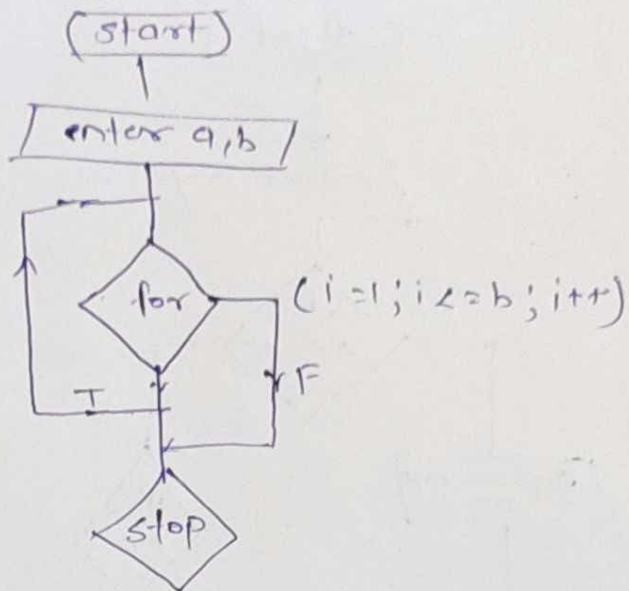 start
enter a,b
for
(i=1; i<=b; i++)
T
F
stop